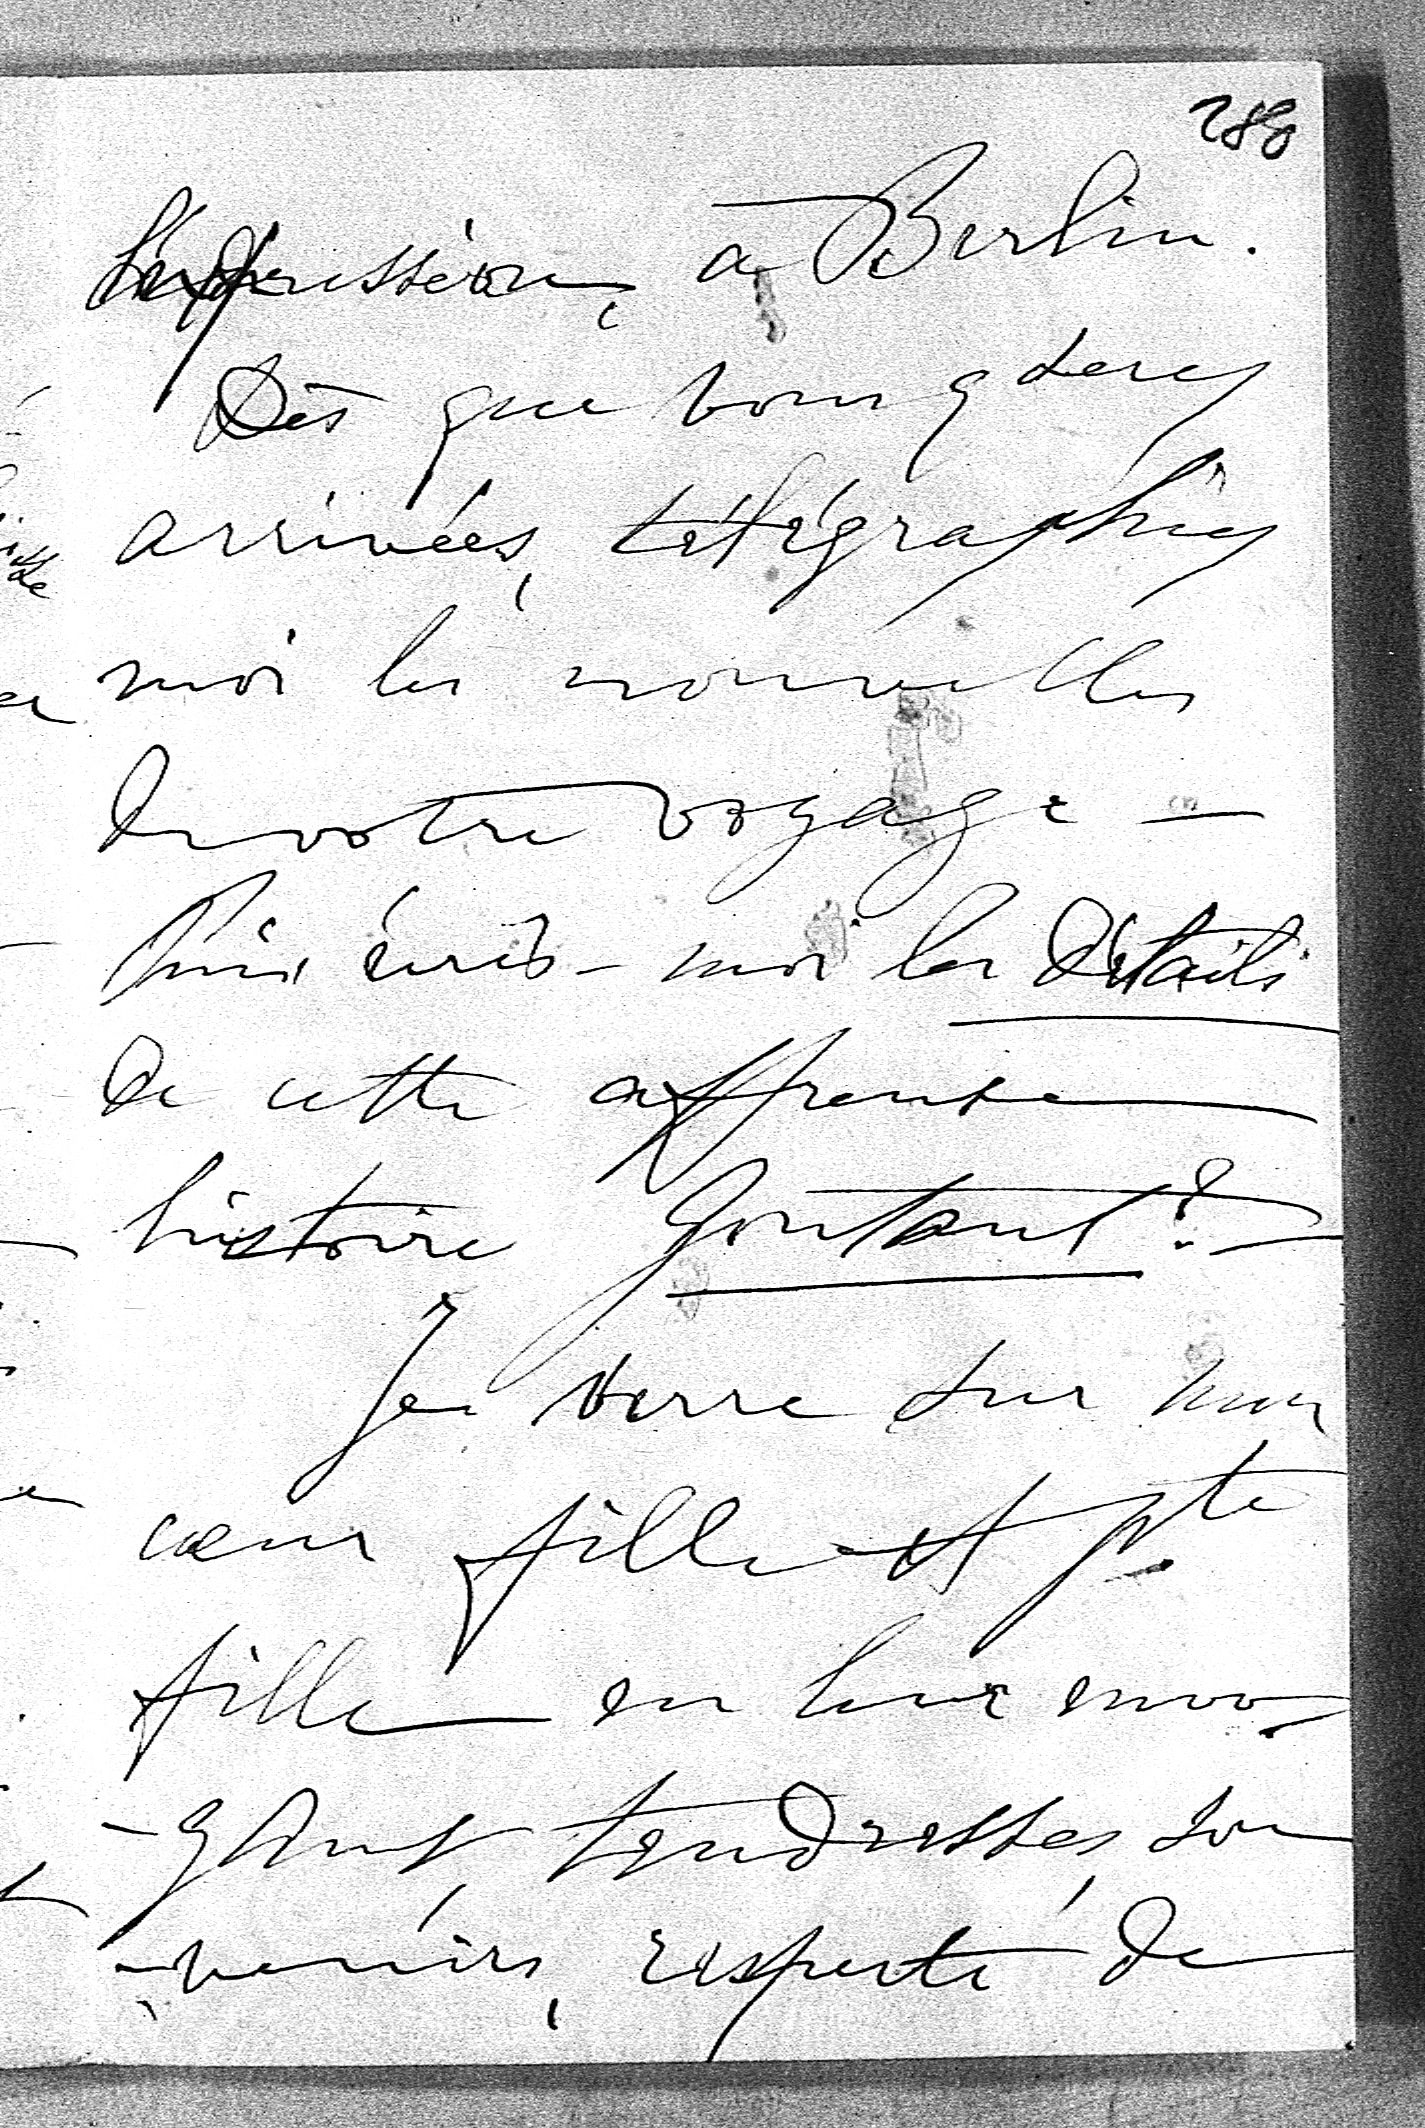 280
l'impression, à Berlin.
Dès que vous y serez
arrivées, télégraphiez
moi les nouvelles
de votre voyage —
Puis écris-moi les détails
de cette affreuse
histoire Gontaut? —
Je serre sur mon
cœur fille et pte
fille en leur envo
-yant tendresses, sou
-venirs, respects de